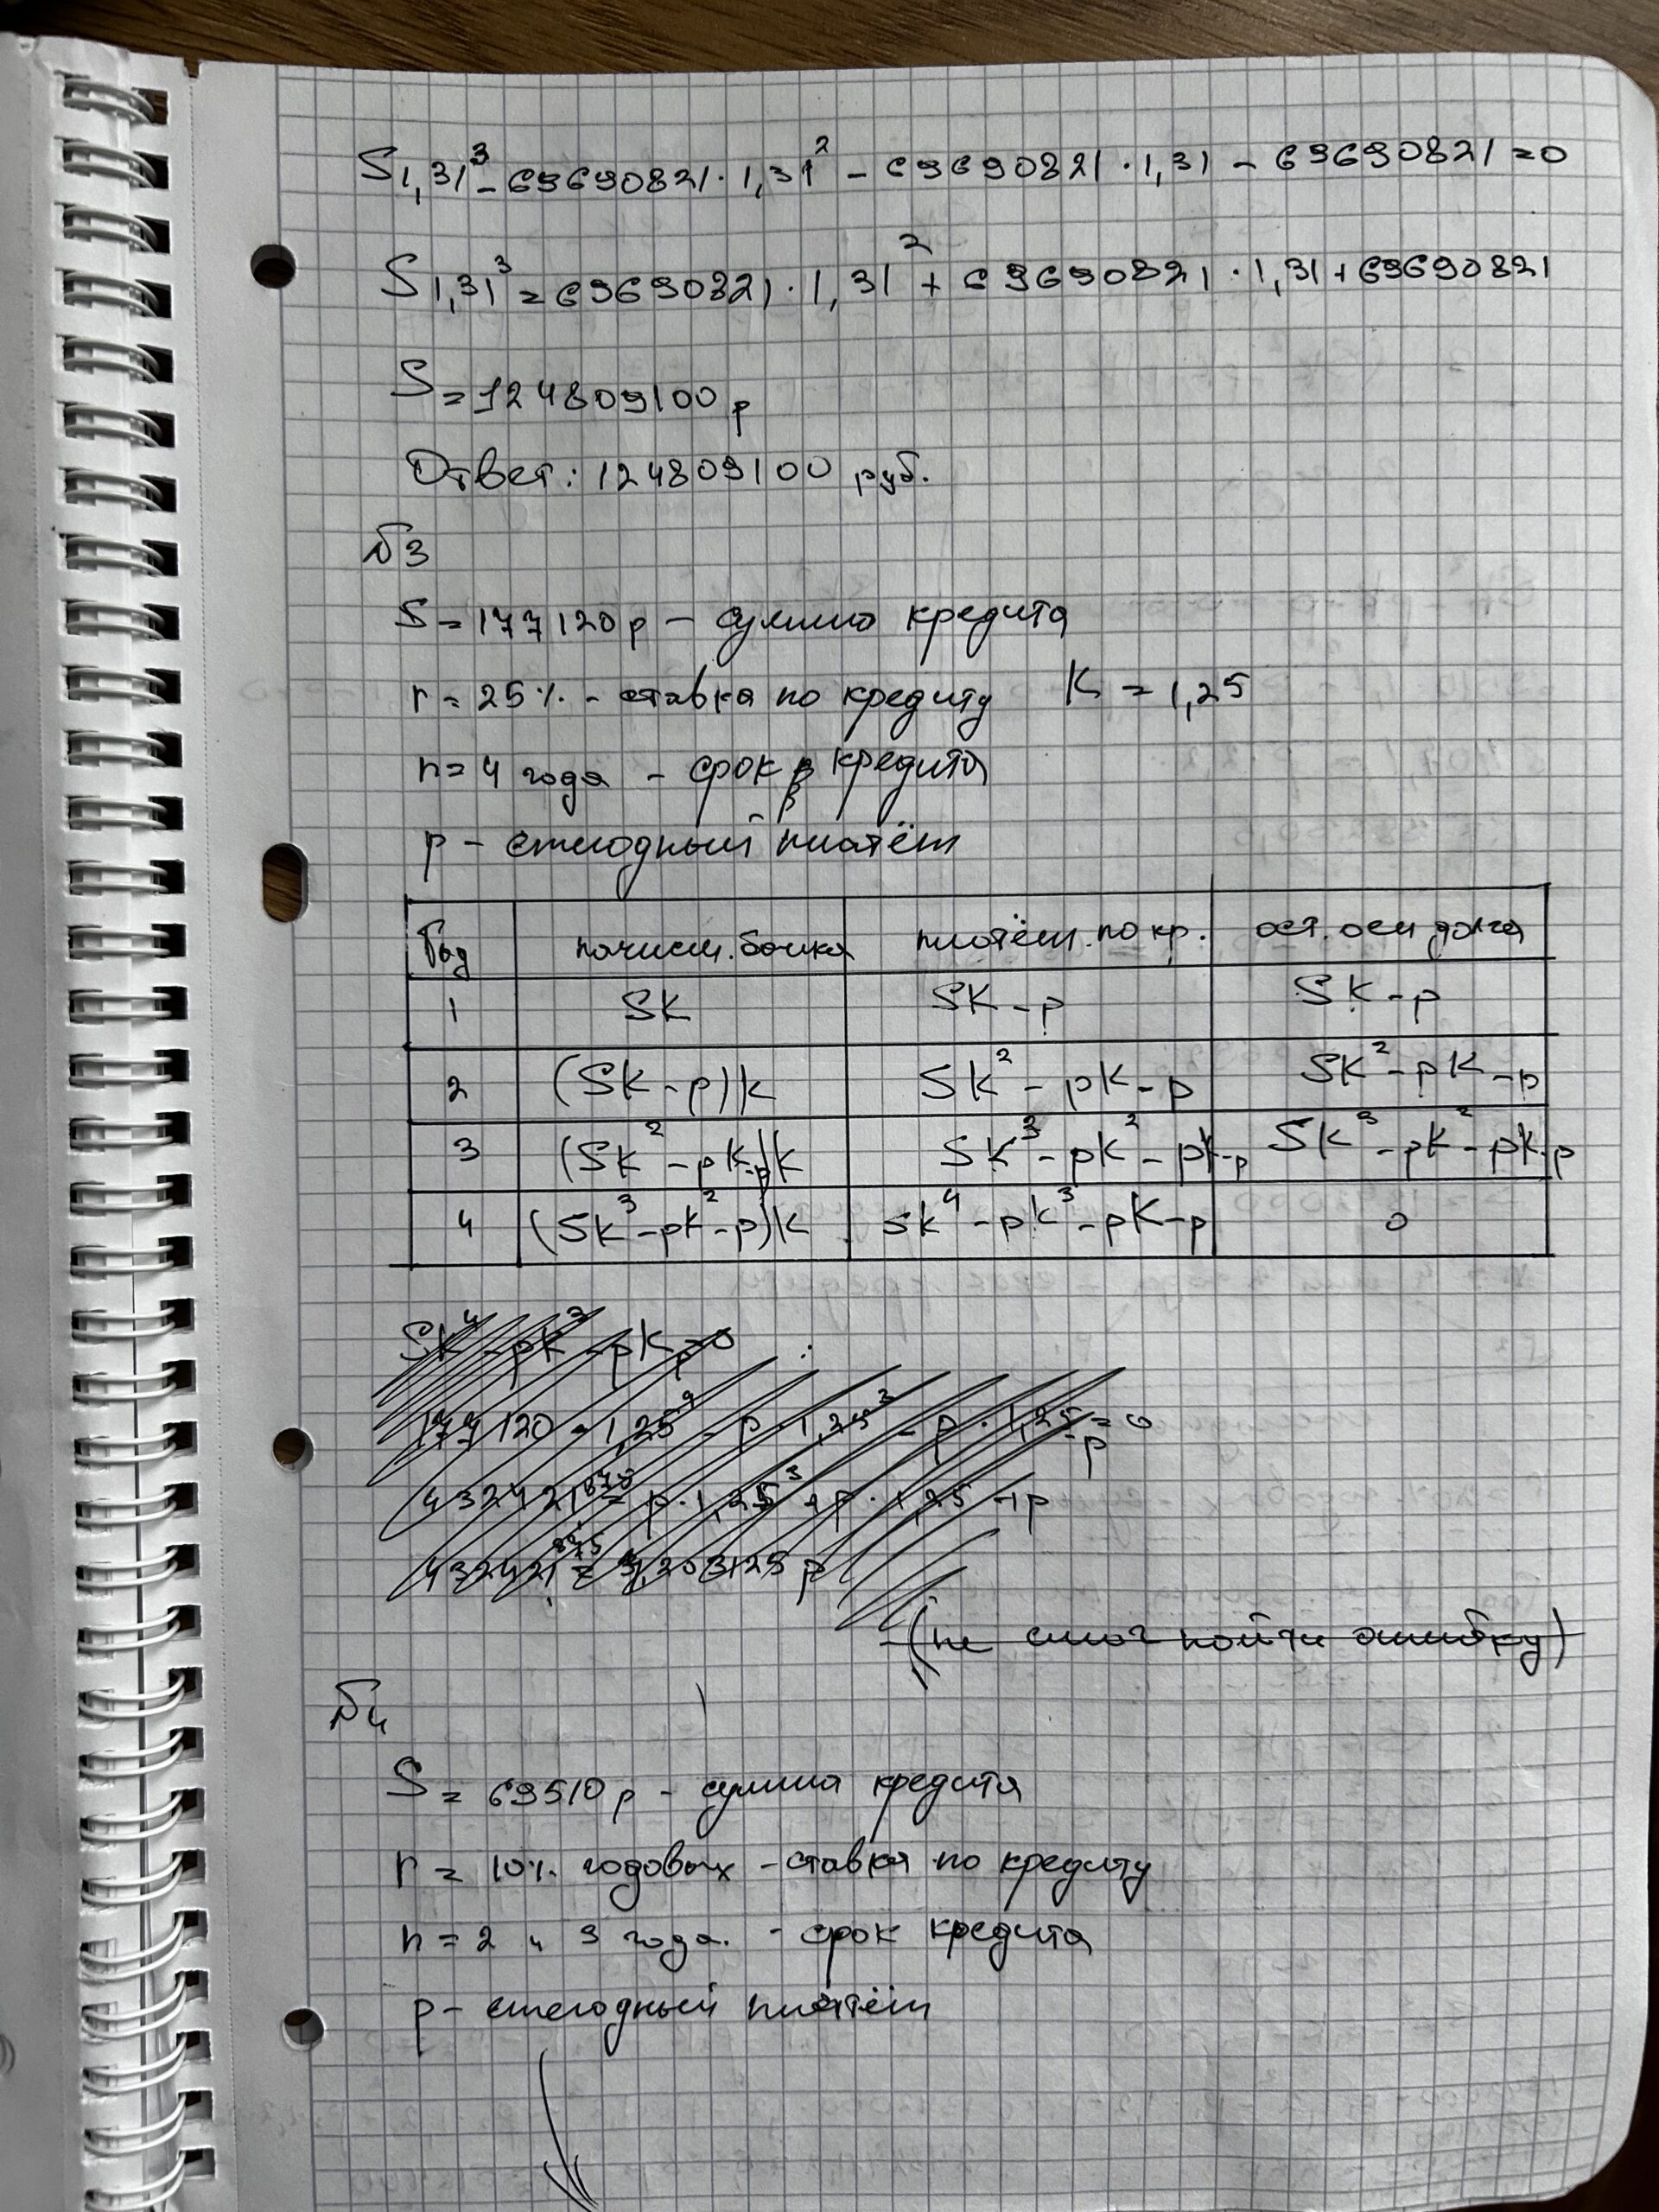 S1,31³ - 69690821 · 1,31² - 69690821 · 1,31 - 69690821 = 0
S1,31³ = 69690821 · 1,31² + 69690821 · 1,31 + 69690821
S = 124809100 р
Ответ: 124809100 руб.
№3
S = 177120 р - сумма кредита
r = 25% - ставка по кредиту K = 1,25
n = 4 года - срок кредита
p - ежегодный платёж
Год начисл. банка платёж по кр. ост. осн долга
1 SK SK - p SK - p
2 (SK - p)K SK² - pK - p SK² - pK - p
3 (SK² - pK - p)K SK³ - pK² - pK - p SK³ - pK² - pK - p
4 (SK³ - pK² - p)K SK⁴ - pK³ - pK - p 0
SK⁴ - pK³ - pK - p = 0
177120 · 1,25⁴ - p · 1,25³ - p · 1,25 - p = 0
432421,875 = p · 1,25³ + p · 1,25 + p
432421,875 = 4,203125 p
(не смог найти ошибку)
№4
S = 69510 р - сумма кредита
r = 10% годовых - ставка по кредиту
n = 2 и 3 года. - срок кредита
p - ежегодный платёж